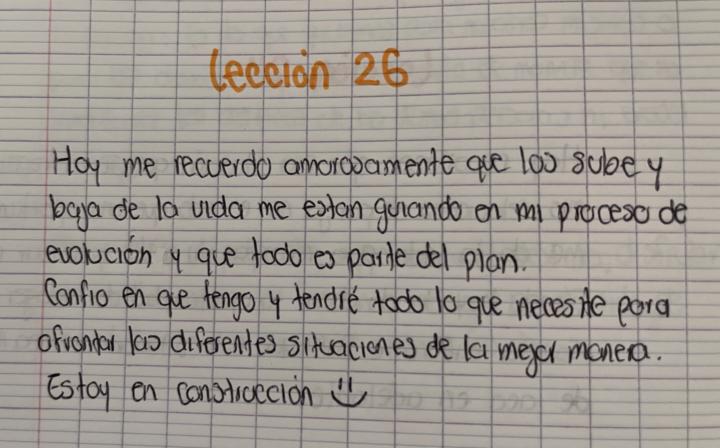 Lección 26
Hoy me recuerdo amorosamente que los sube y
baja de la vida me estan guiando en mi proceso de
evolución y que todo es parte del plan.
Confio en que tengo y tendré todo lo que necesite para
afrontar las diferentes situaciones de la mejor manera.
Estoy en construcción